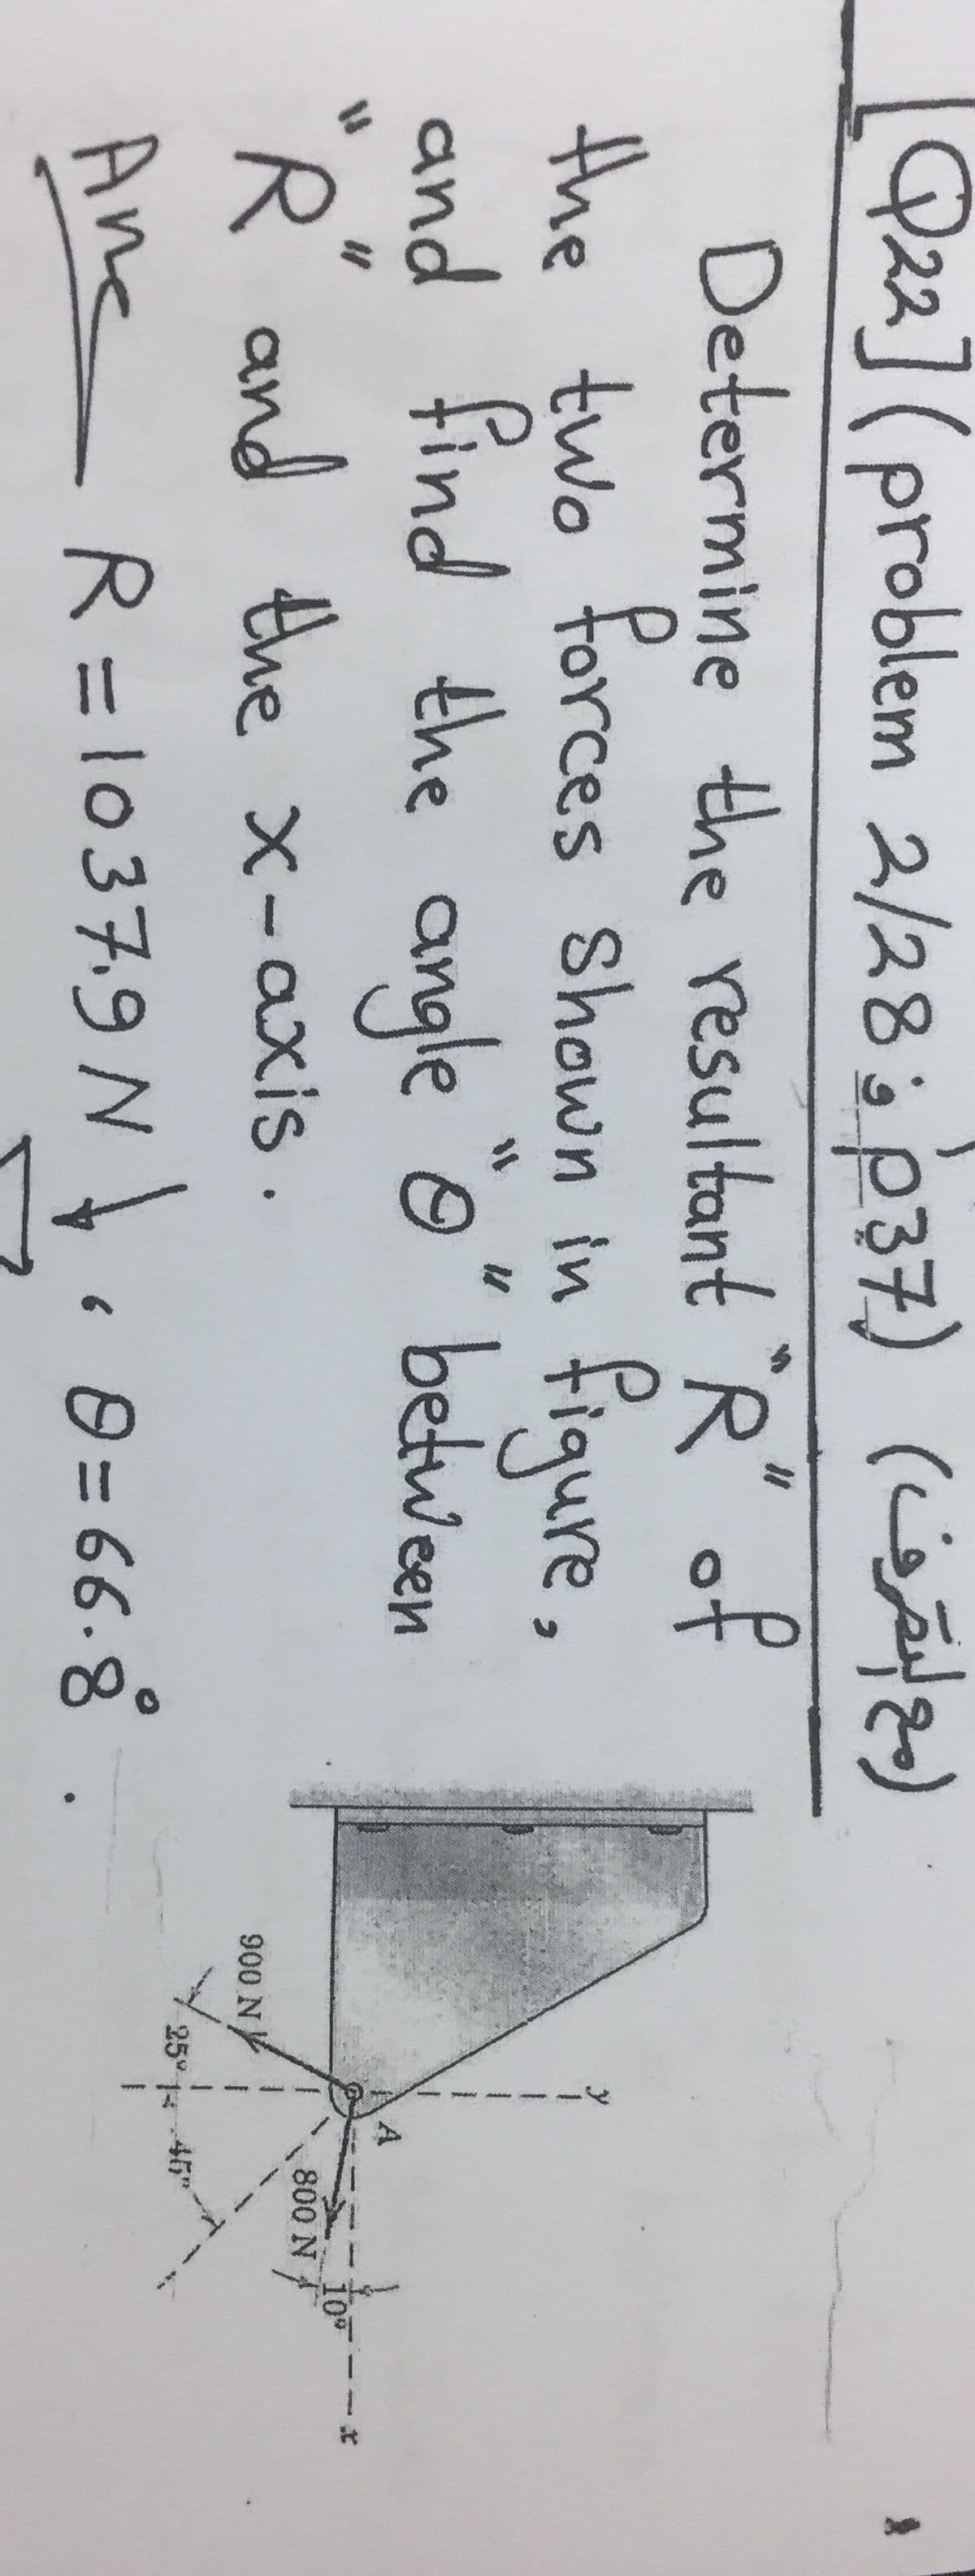 [Q22] (problem 2/28 ; p37) (مع إلتصرف)
Determine the resultant "R" of
the two forces shown in figure,
and find the angle "θ" between
"R" and the x-axis.
Ans R = 1037.9 N ↓ , θ = 66.8° .
y
A
x
800 N
10°
900 N
25°
45°